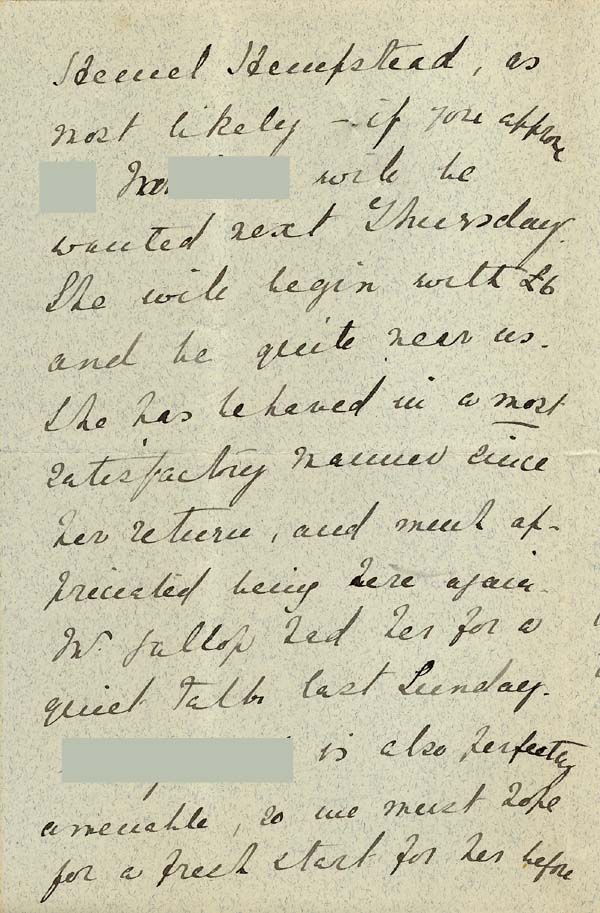 Hemel Hempstead, as
most likely - if you approve
will be
wanted next Thursday.
She will begin with £6
and be quite near us.
She has behaved in a most
satisfactory manner since
her return, and much ap-
preciated being here again.
Mr. Gallop had her for a
quiet talk last Sunday.
is also perfectly
amenable, so we must hope
for a fresh start for her before